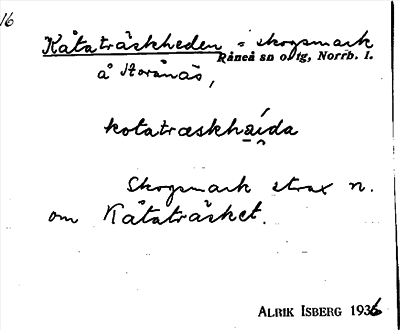 16
Kåtaträskheden = skogsmark
Råneå sn o. tg, Norrb. l.
å Storånäs,
kotatræskhaída
Skogsmark strax n.
om Kåtaträsket.
ALRIK ISBERG 1936